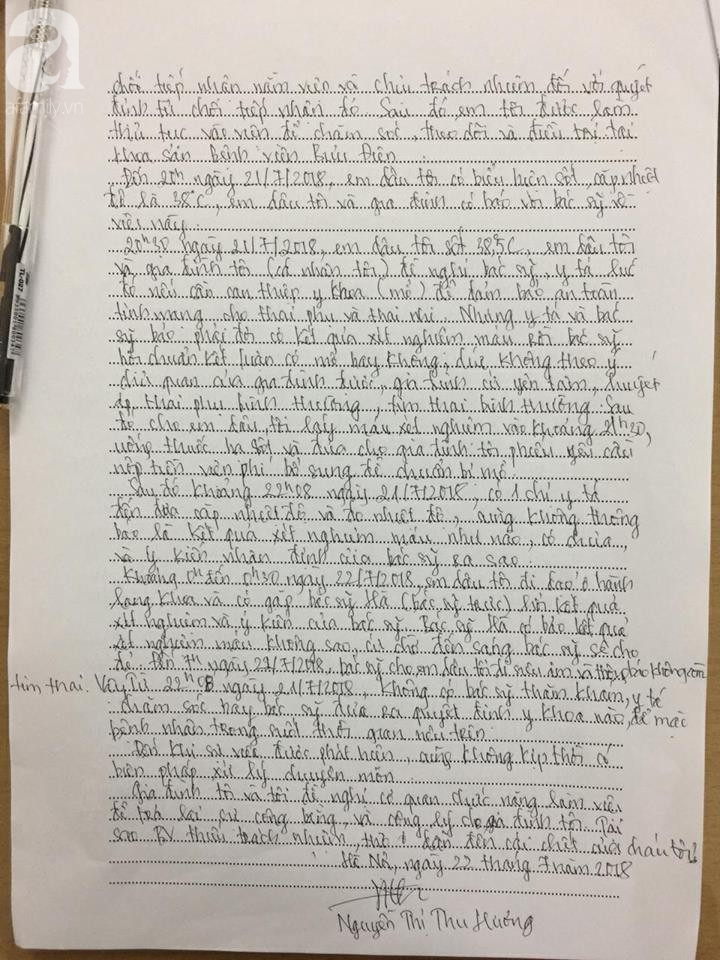 a
afamily.vn
TL-027
chối tiếp nhận nằm viện và chịu trách nhiệm đối với quyết
định từ chối tiếp nhận đó. Sau đó em tôi được làm
thủ tục vào viện để chăm sóc, theo dõi và điều trị tại
khoa sản Bệnh viện Bưu Điện.
Đến 20h ngày 21/7/2018, em dâu tôi có biểu hiện sốt, cặp nhiệt
độ là 38°C, em dâu tôi và gia đình có báo với bác sỹ về
việc này.
20h30 ngày 21/7/2018, em dâu tôi sốt 38,5°C, em dâu tôi
và gia đình tôi (cá nhân tôi) đề nghị bác sỹ, y tá lúc
đó nếu cần can thiệp y khoa (mổ) để đảm bảo an toàn
tính mạng cho thai phụ và thai nhi. Nhưng y tá và bác
sỹ bảo phải đợi có kết quả xét nghiệm máu rồi bác sỹ
hội chuẩn kết luận có mổ hay không, chứ không theo ý
chủ quan của gia đình được, gia đình cứ yên tâm, huyết
áp thai phụ bình thường, tim thai bình thường. Sau
đó cho em dâu tôi lấy máu xét nghiệm vào khoảng 21h30,
uống thuốc hạ sốt và đưa cho gia đình tôi phiếu yêu cầu
nộp tiền viện phí bổ sung để chuẩn bị mổ.
Sau đó khoảng 22h08 ngày 21/7/2018, có 1 chị y tá
đến đưa cặp nhiệt độ và đo nhiệt độ, cũng không thông
báo là kết quả xét nghiệm máu như nào, có chưa,
và ý kiến nhận định của bác sỹ ra sao.
Khoảng 0h đến 0h30 ngày 22/7/2018, em dâu tôi đi dạo ở hành
lang khoa và có gặp bác sỹ Hà (bác sỹ trực) hỏi kết quả
xét nghiệm và ý kiến của bác sỹ. Bác sỹ Hà có bảo kết quả
xét nghiệm máu không sao, cứ chờ đến sáng bác sỹ sẽ cho
đẻ. Đến 7h ngày 22/7/2018, bác sỹ cho em dâu tôi đi siêu âm và thông báo không còn
tim thai. Vậy Từ 22h08 ngày 21/7/2018, không có bác sỹ thăm khám, y tá
chăm sóc hay bác sỹ đưa ra quyết định y khoa nào, để mặc
bệnh nhân trong suốt thời gian nêu trên.
Đến khi sự việc được phát hiện, cũng không kịp thời có
biện pháp xử lý chuyên môn.
Gia đình tôi và tôi đề nghị cơ quan chức năng làm việc
để trả lại sự công bằng, và công lý cho gia đình tôi. Tại
sao BV thiếu trách nhiệm, thờ ơ dẫn đến cái chết của cháu tôi?
Hà Nội, ngày 22 tháng 7 năm 2018
Nguyễn Thị Thu Hương